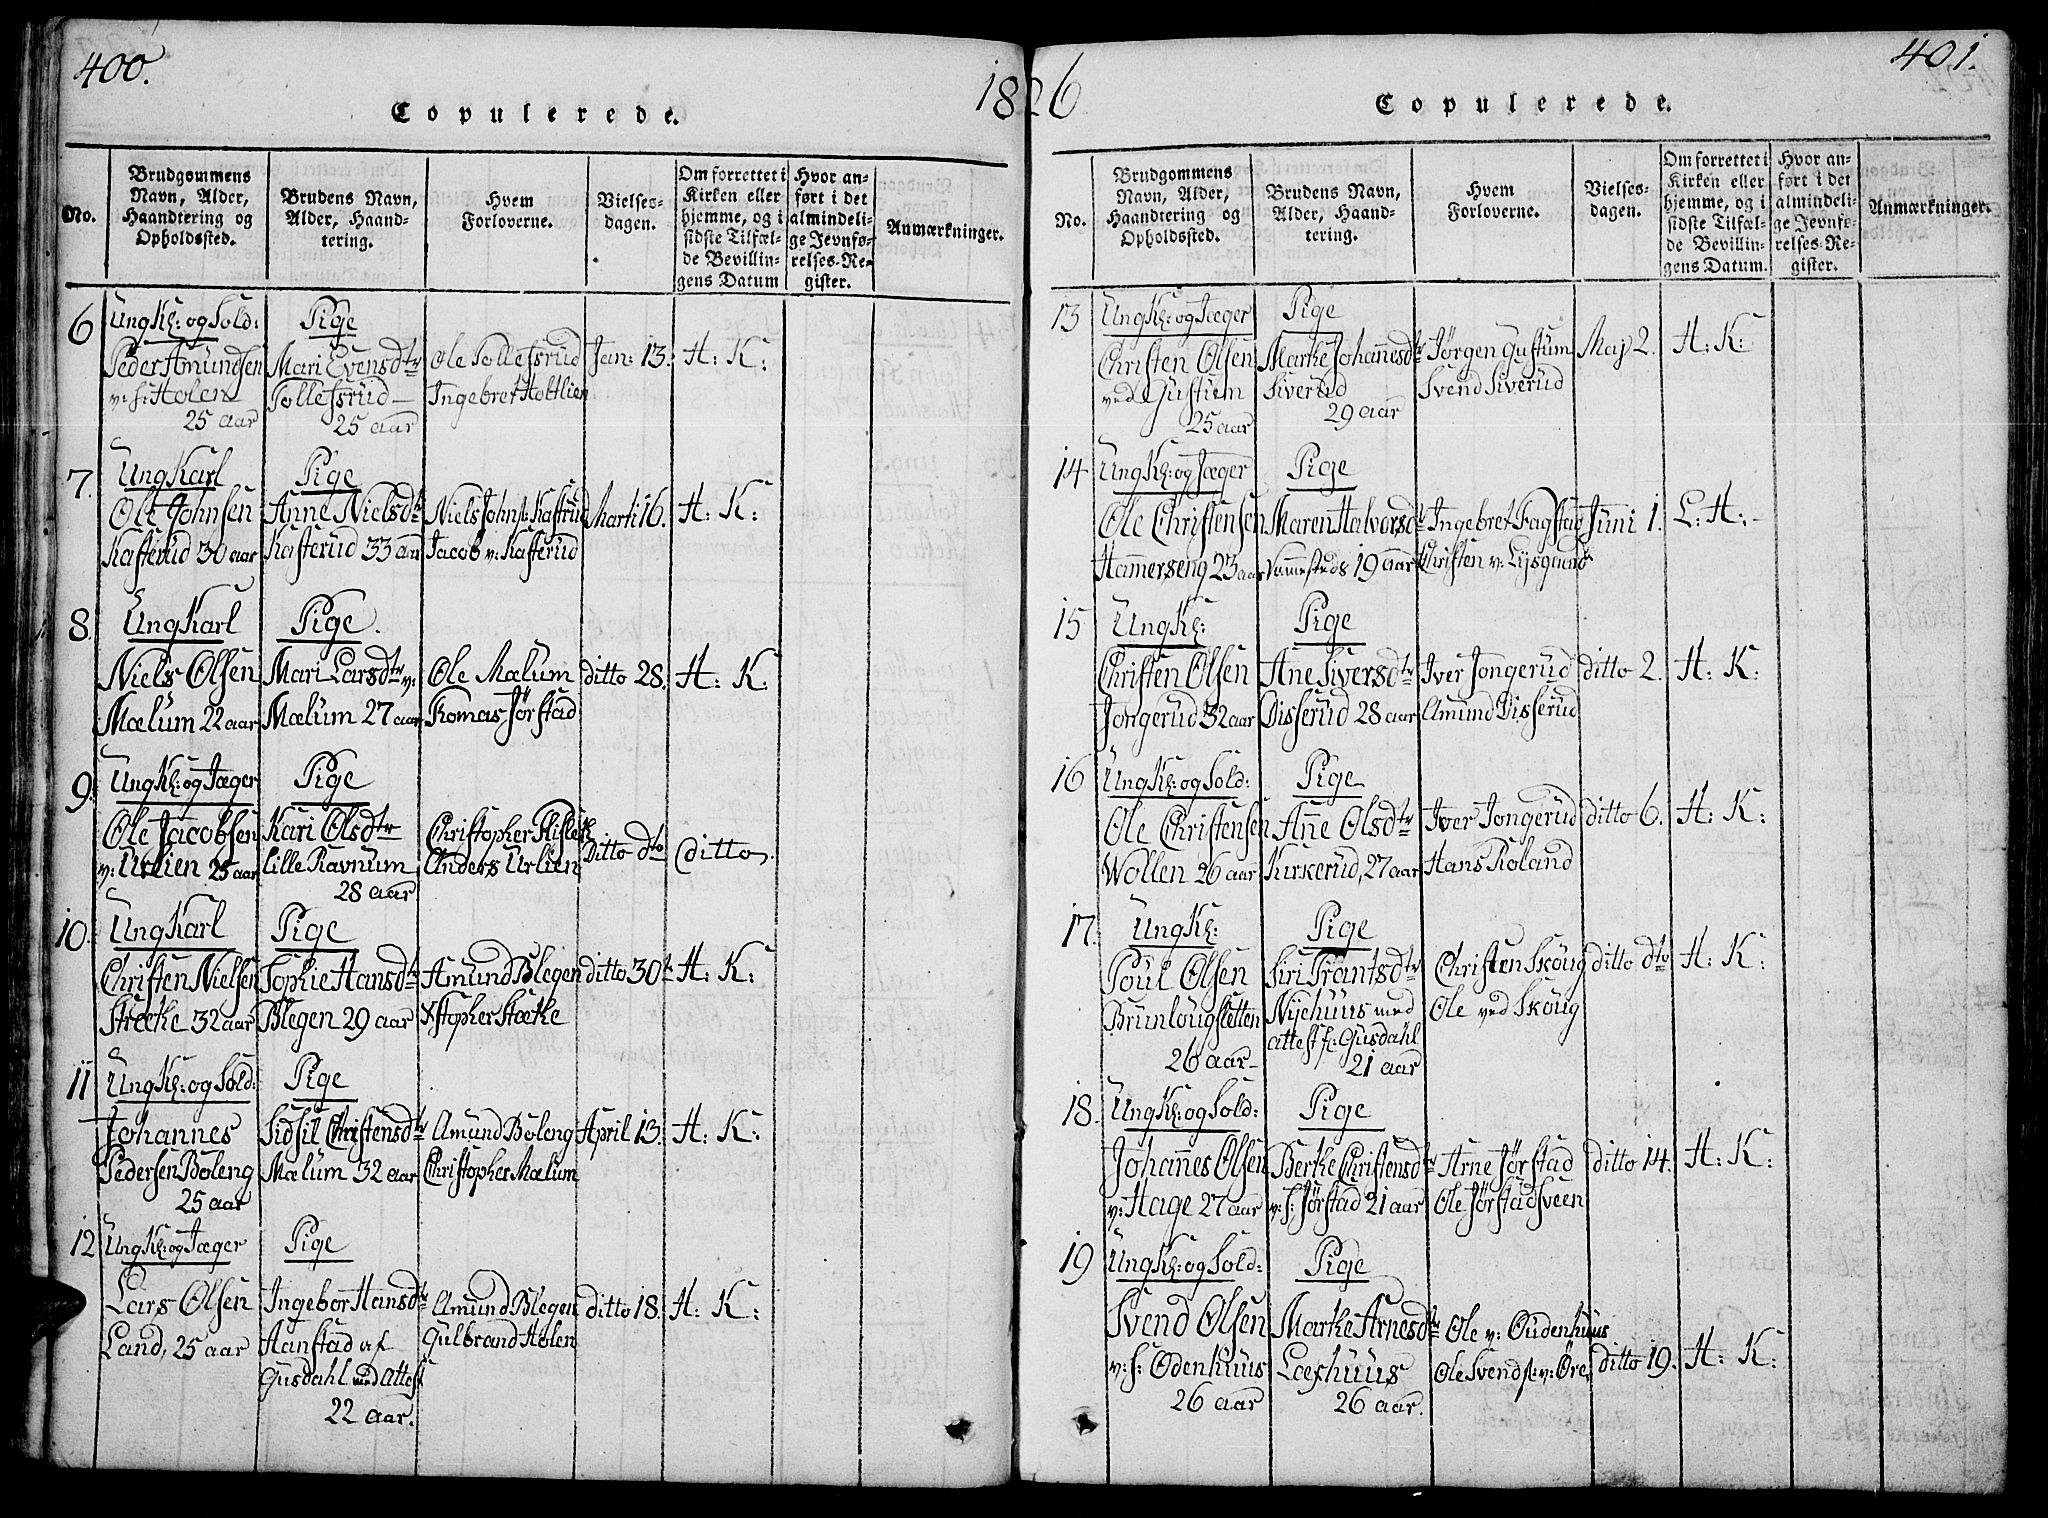 400.
1826
401.
Copulerede.
No.
Brudgommens Navn, Alder, Haandtering og Opholdssted.
Brudens Navn, Alder, Haandtering.
Hvem Forloverne.
Vielsesdagen.
Om forrettet i Kirken eller hjemme, og i sidste Tilfælde Bevillingens Datum
Hvor anført i det almindelige Jevnførelses-Register.
Anmærkninger.
6
Ung K: og Sold: Pige
Peder Amundsen Mari Evensdtr Ole Tollefsrud Jan: 13. H: K:
v: s: Holen Tollefsrud Ingebret Holtlien
25 aar 25 aar
7.
Ung Karl Pige
Ole Johnsen Anne Nielsdtr Niels Johns: Kasterud Marti 16. H: K:
Kasterud 30 aar Kasterud 33 aar Jacob v: Kasterud
8.
Ung Karl Pige.
Niels Olsen Mari Larsdtr v: Ole Mælum ditto 28. H: K:
Mælum 22 aar Mælum 27 aar Tomas Jørstad
9.
Ung K: og Jæger Pige
Ole Jacobsen Kari Olsdtr Christopher Ditto dto ditto
v: Urlien 25 aar Lille Ravnum Anders Urlien
28 aar
10.
Ung Karl Pige
Christen Nielsen Sophie Hansdtr Amund Blegen ditto 30te H: K:
Stræke 32 aar Blegen 29 aar Xstopher Stræke
11
Ung K: og Sold: Pige
Johannes Sidsil Christensdtr Amund Boleng April 13. H: K:
Pedersen Boleng Mælum 32 aar Christopher Mælum
25 aar
12
Ung K: og Jæger Pige
Lars Olsen Ingebor Hansdtr Amund Blegen ditto 18. H: K:
Land, 25 aar Hanstad af Gulbrand Holen
Gusdahl med Attest
22 aar.
Copulerede.
No.
Brudgommens Navn, Alder, Haandtering og Opholdssted.
Brudens Navn, Alder, Haandtering.
Hvem Forloverne.
Vielsesdagen.
Om forrettet i Kirken eller hjemme, og i sidste Tilfælde Bevillingens Datum.
Hvor anført i det almindelige Jevnførelses-Register.
Anmærkninger.
13
Ung K: og Jæger Pige
Christen Olsen Marte Johannesdtr Jørgen Gustum Maj 2. H: K:
ved Gustum Siverud Svend Siverud
25 aar 29 aar
14
Ung K: og Jæger Pige
Ole Christensen Maren Halvorsdtr Ingebret Fagstad Juni 1. L: H:
Hamerseng 23 aar 19 aar Christen v: Lysgaard
15
Ung K: Pige
Christen Olsen Ane Siversdtr Iver Jongerud ditto 2. H: K:
Jongerud 32 aar Disserud 28 aar Amund Disserud
16
Ung K: og Sold: Pige
Ole Christensen Anne Olsdtr Iver Jongerud ditto 6. H: K:
Wollen 26 aar Kirkerud, 27 aar Hans Roland
17.
Ung K: Pige
Poul Olsen Siri Frantsdtr Christen Skoug ditto dto H: K:
Brunlougsletten Nyehuus med Ole ved Skoug
26 aar attest f: Gusdahl
21 aar
18.
Ung K: og Sold: Pige
Johannes Olsen Berte Christensdtr Arne Jørstad ditto 14. H: K:
v: Hage 27 aar v: s: Jørstad 21 aar Ole Jørstadsveen
19
Ung K: og Sold: Pige
Svend Olsen Marte Arnesdtr Ole v: Oudenhuus
v: s: Odenhuus Loeshuus Ole Svends: v: Øre ditto 19. H: K:
26 aar 26 aar.